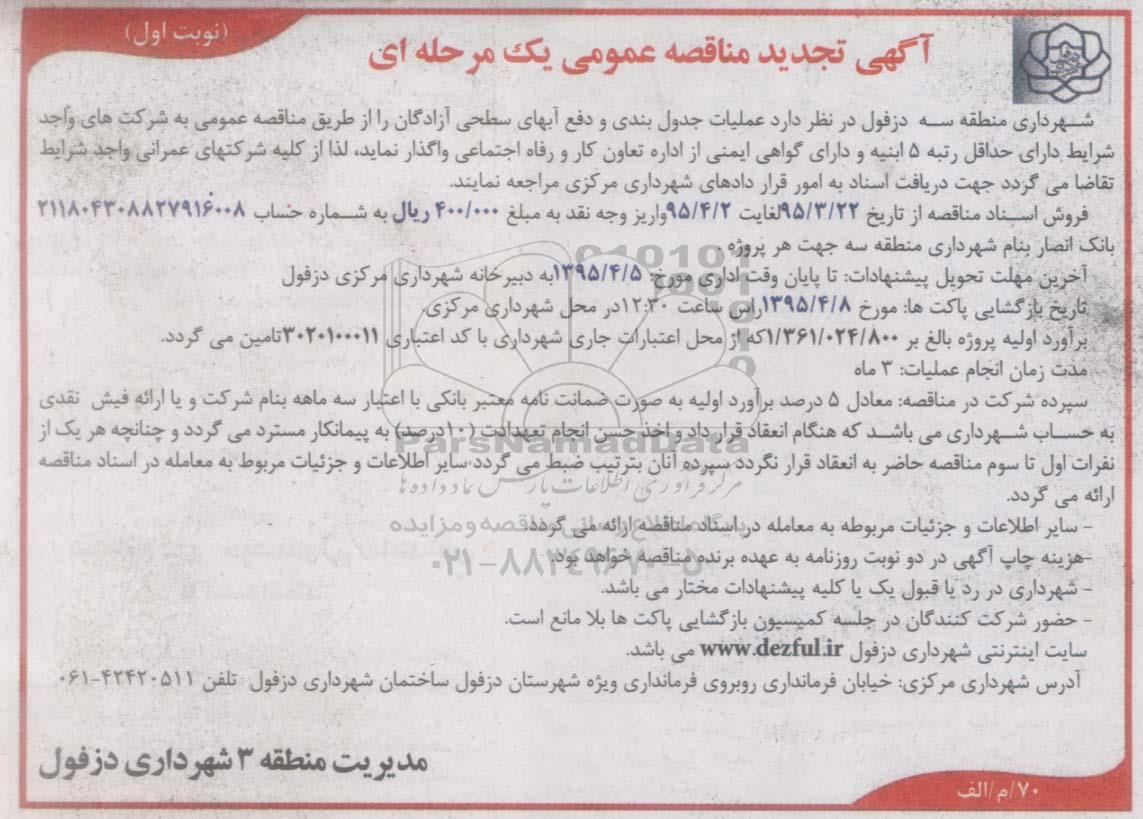 (نوبت اول)
آگهی تجدید مناقصه عمومی یک مرحله ای
شهرداری منطقه سه دزفول در نظر دارد عملیات جدول بندی و دفع آبهای سطحی آزادگان را از طریق مناقصه عمومی به شرکت های واجد
شرایط دارای حداقل رتبه ۵ ابنیه و دارای گواهی ایمنی از اداره تعاون کار و رفاه اجتماعی واگذار نماید، لذا از کلیه شرکتهای عمرانی واجد شرایط
تقاضا می گردد جهت دریافت اسناد به امور قرار دادهای شهرداری مرکزی مراجعه نمایند.
فروش اسناد مناقصه از تاریخ ۹۵/۳/۲۲لغایت ۹۵/۴/۲واریز وجه نقد به مبلغ ۴۰۰/۰۰۰ ریال به شماره حساب ۲۱۱۸۰۴۳۰۸۸۲۷۹۱۶۰۰۸
بانک انصار بنام شهرداری منطقه سه جهت هر پروژه .
آخرین مهلت تحویل پیشنهادات: تا پایان وقت اداری مورخ: ۱۳۹۵/۴/۵به دبیرخانه شهرداری مرکزی دزفول
تاریخ بازگشایی پاکت ها: مورخ ۱۳۹۵/۴/۸راس ساعت ۱۲:۳۰در محل شهرداری مرکزی.
برآورد اولیه پروژه بالغ بر ۱/۳۶۱/۰۲۴/۸۰۰که از محل اعتبارات جاری شهرداری با کد اعتباری ۳۰۲۰۱۰۰۰۱۱تامین می گردد.
مدت زمان انجام عملیات: ۳ ماه
سپرده شرکت در مناقصه: معادل ۵ درصد برآورد اولیه به صورت ضمانت نامه معتبر بانکی با اعتبار سه ماهه بنام شرکت و یا ارائه فیش نقدی
به حساب شهرداری می باشد که هنگام انعقاد قرار داد و اخذ حسن انجام تعهدات (۱۰درصد) به پیمانکار مسترد می گردد و چنانچه هر یک از
نفرات اول تا سوم مناقصه حاضر به انعقاد قرار نگردد سپرده آنان بترتیب ضبط می گردد.سایر اطلاعات و جزئیات مربوط به معامله در اسناد مناقصه
ارائه می گردد.
- سایر اطلاعات و جزئیات مربوطه به معامله در اسناد مناقصه ارائه می گردد.
-هزینه چاپ آگهی در دو نوبت روزنامه به عهده برنده مناقصه خواهد بود.
- شهرداری در رد یا قبول یک یا کلیه پیشنهادات مختار می باشد.
- حضور شرکت کنندگان در جلسه کمیسیون بازگشایی پاکت ها بلا مانع است.
سایت اینترنتی شهرداری دزفول www.dezful.ir می باشد.
آدرس شهرداری مرکزی: خیابان فرمانداری روبروی فرمانداری ویژه شهرستان دزفول ساختمان شهرداری دزفول تلفن ۰۶۱-۴۲۴۲۰۵۱۱
مدیریت منطقه ۳ شهرداری دزفول
۷۰/م/الف
ParsNamadData
مرکز فرآوری اطلاعات پارس نماد داده ها
پایگاه اطلاع رسانی مناقصه و مزایده
۰۲۱-۸۸۳۴۹۶۷۰-۵